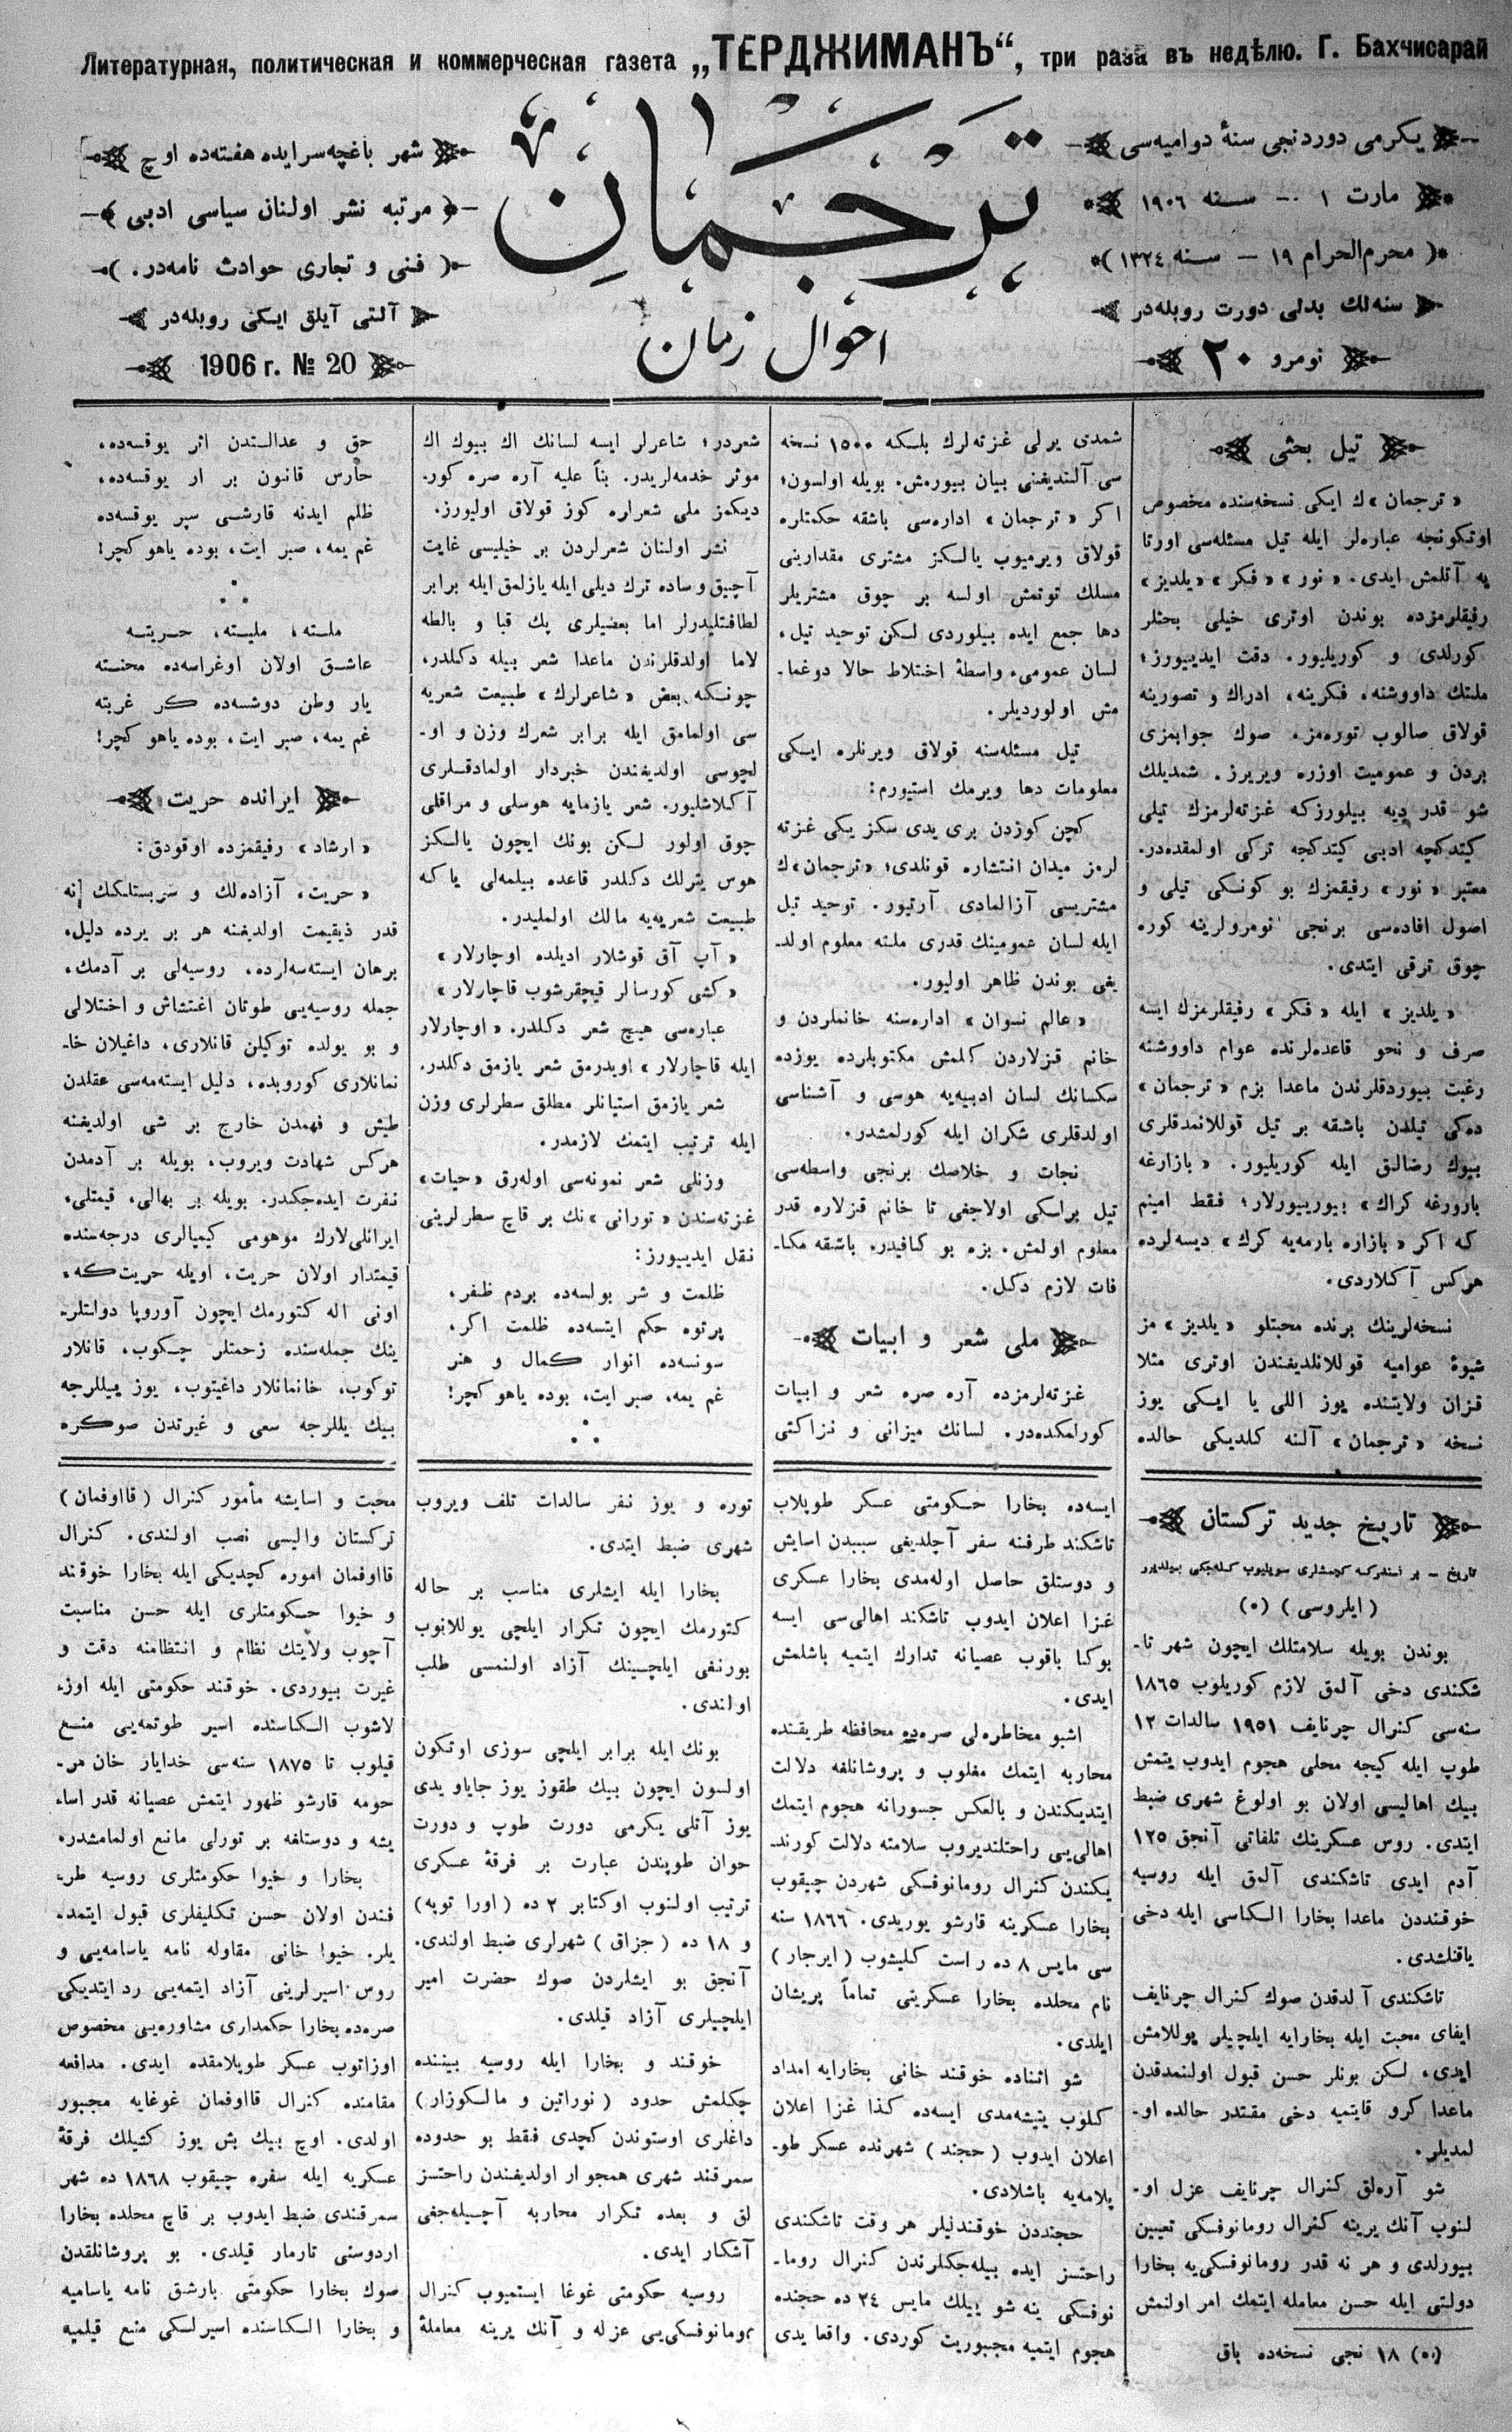 Литературная, политическая и коммерческая газета „ТЕРДЖИМАНЪ“, три раза въ недѣлю. Г. Бахчисарай
يكرمی دوردنجی سنۀ دواميه‌سی
مارت ١ — سـنه ١٩٠٦
( محرم‌الحرام ١٩ — سـنه ١٣٢٤ )
سنه‌لك بدلی دورت روبله‌در
نومرو ٢٠
ترجمان
احوال زمان
شهر باغچه‌سرايده هفته‌ده اوچ
مرتبه نشر اولنان سياسی ادبی
( فنی و تجاری حوادث نامه‌در. )
آلتی آيلق ايكی روبله‌در
1906 г. № 20
تيل بحثی
« ترجمان »ك ايكی نسخه‌سنده مخصوص
اوتكونجه عباره‌لر ايله تيل مسئله‌سی اورتا
يه آتلمش ايدی. « نور » « فكر » « يلديز »
رفيقلرمزده بوندن اوتری خيلی بحثلر
كورلدی و كوريليور. دقت ايدييورز؛
ملتك داووشنه، فكرينه، ادراك و تصورينه
قولاق صالوب توره‌مز. صوك جوابمزی
بردن و عموميت اوزره ويريرز. شمديلك
شو قدر ديه بيلورزكه غزته‌لرمزك تيلی
كيتدكچه ادبی كيتدكچه تركی اولمقده‌در.
معتبر « نور » رفيقمزك بو كونسكی تيلی و
اصول افاده‌سی برنجی نومرولرينه كوره
چوق ترقی ايتدی.
« يلديز » ايله « فكر » رفيقلرمزك ايسه
صرف و نحو قاعده‌لرنده عوام داووشنه
رغبت بيوردقلرندن ماعدا بزم « ترجمان »
ده‌كی تيلدن باشقه بر تيل قوللانمدقلری
بيوك رضالق ايله كوريليور. « بازارغه
بارورغه كراك » بيورييورلار؛ فقط امينم
كه اكر « بازاره بارمه‌يه كرك » ديسه‌لرده
هركس آكلاردی.
نسخه‌لرينك برنده محبتلو « يلديز » مز
شيوۀ عواميه قوللانلديغندن اوتری مثلا
قزان ولايتنده يوز اللی يا ايكی يوز
نسخه « ترجمان » آلنه كلديكی حالده
شمدی يرلی غزته‌لرك بلسكه ١٥٠٠ نسخه
سی آلنديغنی بيان بيورمش. بويله اولسون؛
اكر « ترجمان » اداره‌سی باشقه حكمتلره
قولاق ويرميوب يالكز مشتری مقدارينی
مسلك توتمش اولسه بر چوق مشتريلر
دها جمع ايده بيلوردی لكن توحيد تيل،
لسان عمومی، واسطۀ اختلاط حالا دوغما-
مش اولورديلر.
تيل مسئله‌سنه قولاق ويرنلره ايسكی
معلومات دها ويرمك استيورم:
كچن كوزدن بری يدی سكز يكی غزته
لرمز ميدان انتشاره قونلدی؛ « ترجمان »ك
مشتريسی آزالمادی آرتيور. توحيد تيل
ايله لسان عمومينك قدری ملته معلوم اولد-
يغی بوندن ظاهر اوليور.
« عالم نسوان » اداره‌سنه خانملردن و
خانم قزلاردن كلمش مكتوبلرده يوزده
سكسانك لسان ادبيه‌يه هوسی و آشناسی
اولدقلری شكران ايله كورلمشدر.
نجات و خلاصك برنجی واسطه‌سی
تيل براسكی اولاجغی تا خانم قزلاره قدر
معلوم اولمش. بزه بو كافيدر. باشقه مكا-
فات لازم دكل.
ملی شعر و ابيات
غزته‌لرمزده آره صره شعر و ابيات
كورلمكده‌در. لسانك ميزانی و نزاكتی
شعردر؛ شاعرلر ايسه لسانك اك بيوك اك
موثر خدمه‌لريدر. بناً عليه آره صره كور-
ديكمز ملی شعراره كوز قولاق اوليورز.
نشر اولنان شعرلردن بر خيليسی غايت
آچيق و ساده ترك ديلی ايله يازلمق ايله برابر
لطافتليدرلر اما بعضيلری پك قبا و بالطه
لاما اولدقلرندن ماعدا شعر بيله دكلدر،
چونسكه بعض « شاعرلرك » طبيعت شعريه
سی اولمامق ايله برابر شعرك وزن و او-
لچوسی اولديغندن خبردار اولمادقلری
آكلاشليور. شعر يازمايه هوسلی و مراقلی
چوق اولور لكن بونك ايچون يالكز
هوس يترلك دكلدر قاعده بيلمه‌لی ياكه
طبيعت شعريه‌يه مالك اولمليدر.
« آپ آق قوشلار اديلده اوچارلار »
« كشی كورسالر قيچقرشوب قاچارلار »
عباره‌سی هيچ شعر دكلدر. « اوچارلار
ايله قاچارلار » اويدرمق شعر يازمق دكلدر.
شعر يازمق استيانلر مطلق سطرلری وزن
ايله ترتيب ايتمك لازمدر.
وزنلی شعر نمونه‌سی اوله‌رق « حيات »
غزته‌سندن « تورانی »نك بر قاچ سطرلرينی
نقل ايدييورز:
ظلمت و شر بولسه‌ده بردم ظفر،
پرتوه حكم ايتسه‌ده ظلمت اكر،
سونسه‌ده انوار كمال و هنر
غم يمه، صبر ايت، بوده ياهو كچر!
حق و عدالتدن اثر يوقسه‌ده،
حارس قانون بر ار يوقسه‌ده،
ظلم ايدنه قارشی سپر يوقسه‌ده
غم يمه، صبر ايت، بوده ياهو كچر!
ملته، مليته، حريته
عاشق اولان اوغراسه‌ده محنته
يار وطن دوشسه‌ده كر غربته
غم يمه، صبر ايت، بوده ياهو كچر!
ايرانده حريت
« ارشاد » رفيقمزده اوقودق:
« حريت، آزاده‌لك و سربستلكك نه
قدر ذيقيمت اولديغنه هر بر يرده دليل،
برهان ايسته‌سه‌لرده، روسيه‌لی بر آدمك،
جمله روسيه‌يی طوتان اغتشاش و اختلالی
و بو يولده توكيلن قانلاری، داغيلان خا-
نمانلاری كوروبده، دليل ايسته‌مه‌سی عقلدن
طيش و فهمدن خارج بر شی اولديغنه
هركس شهادت ويروب، بويله بر آدمدن
نفرت ايده‌جكدر. بويله بر بهالی، قيمتلی،
ايرانلی‌لارك موهومی كيميالری درجه‌سنده
قيمتدار اولان حريت، اويله حريت‌كه،
اونی اله كتورمك ايچون آوروپا دولتلر-
ينك جمله‌سنده زحمتلر چكوب، قانلار
توكوب، خانمانلار داغيتوب، يوز ييللرجه
بيك يللرجه سعی و غيرتدن صوكره
تاريخ جديد تركستان
( ايلروسی ) (٥)
بوندن بويله سلامتلك ايچون شهر تا-
شكندی دخی آلمق لازم كوريلوب ١٨٦٥
سنه‌سی كنرال چرنايف ١٩٥١ سالدات ١٢
طوپ ايله كيجه محلی هجوم ايدوب يتمش
بيك اهاليسی اولان بو اولوغ شهری ضبط
ايتدی. روس عسكرينك تلفاتی آنجق ١٢٥
آدم ايدی تاشكندی آلمق ايله روسيه
خوقنددن ماعدا بخارا الكاسی ايله دخی
ياقلشدی.
تاشكندی آلدقدن صوك كنرال چرنايف
ايفای محبت ايله بخارايه ايلچيلر يوللامش
ايدی، لكن بونلر حسن قبول اولنمدقدن
ماعدا كرو قايتميه دخی مقتدر حالده او-
لمديلر.
شو آره‌لق كنرال چرنايف عزل او-
لنوب آنك يرينه كنرال رومانوفسكی تعيين
بيورلدی و هر نه قدر رومانوفسكی‌يه بخارا
دولتی ايله حسن معامله ايتمك امر اولنمش
(٥) ١٨ نجی نسخه‌ده باق
ايسه‌ده بخارا حكومتی عسكر طوپلاب
تاشكند طرفنه سفر آچلديغی سببدن اسايش
و دوستلق حاصل اوله‌مدی بخارا عسكری
غزا اعلان ايدوب تاشكند اهالی‌سی ايسه
بوكا باقوب عصيانه تدارك ايتميه باشلمش
ايدی.
اشبو مخاطره‌لی صره‌ده محافظه طريقنده
محاربه ايتمك مغلوب و پروشانلغه دلالت
ايتديكندن و بالعكس جسورانه هجوم ايتمك
اهالی‌يی راحتلنديروب سلامته دلالت كورند-
يكندن كنرال رومانوفسكی شهردن چيقوب
بخارا عسكرينه قارشو يوريدی. ١٨٦٦ سنه
سی مايس ٨ ده راست كليشوب ( ايرجار )
نام محلده بخارا عسكرينی تماماً پريشان
ايلدی.
شو اثناده خوقند خانی بخارايه امداد
كلوب يتيشه‌مدی ايسه‌ده كذا غزا اعلان
اعلان ايدوب ( خجند ) شهرنده عسكر طو-
پلامه‌يه باشلادی.
خجنددن خوقندليلر هر وقت تاشكندی
راحتسز ايده بيله‌جكلرندن كنرال روما-
نوفسكی ينه شو ييلك مايس ٢٤ ده خجنده
هجوم ايتميه مجبوريت كوردی. واقعا يدی
توره و يوز نفر سالدات تلف ويروب
شهری ضبط ايتدی.
بخارا ايله ايشلری مناسب بر حاله
كتورمك ايچون تكرار ايلچی يوللانوب
بورنغی ايلچينك آزاد اولنمسی طلب
اولندی.
بونك ايله برابر ايلچی سوزی اوتكون
اولسون ايچون بيك طقوز يوز جاياو يدی
يوز آتلی يكرمی دورت طوپ و دورت
حوان طوپندن عبارت بر فرقۀ عسكری
ترتيب اولنوب اوكتابر ٢ ده ( اورا توبه )
و ١٨ ده ( جزاق ) شهرلری ضبط اولندی.
آنجق بو ايشلردن صوك حضرت امير
ايلچيلری آزاد قيلدی.
خوقند و بخارا ايله روسيه بيننده
چكلمش حدود ( نوراتين و مالكوزار )
داغلری اوستوندن كچدی فقط بو حدوده
سمرقند شهری همجوار اولديغندن راحتسز
لق و بعده تكرار محاربه آچيله‌جغی
آشكار ايدی.
روسيه حكومتی غوغا ايستميوب كنرال
رومانوفسكی‌يی عزله و آنك يرينه معاملۀ
محبت و اسايشه مأمور كنرال ( قااوفمان )
تركستان واليسی نصب اولندی. كنرال
قااوفمان اموره كچديكی ايله بخارا خوقند
و خيوا حكومتلری ايله حسن مناسبت
آچوب ولايتك نظام و انتظامنه دقت و
غيرت بيوردی. خوقند حكومتی ايله اوز-
لاشوب الكاسنده اسير طوتمه‌يی منع
قيلوب تا ١٨٧٥ سنه‌سی خدايار خان مر-
حومه قارشو ظهور ايتمش عصيانه قدر اسا-
يشه و دوستلغه بر تورلی مانع اولمامشدر.
بخارا و خيوا حكومتلری روسيه طر-
فندن اولان حسن تكليفلری قبول ايتمد-
يلر. خيوا خانی مقاوله نامه ياسامه‌يی و
روس اسيرلرينی آزاد ايتمه‌يی رد ايتديكی
صره‌ده بخارا حكمداری مشاوره‌يی مخصوص
اوزاتوب عسكر طوپلامقده ايدی. مدافعه
مقامنده كنرال قااوفمان غوغايه مجبور
اولدی. اوچ بيك بش يوز كشيلك فرقۀ
عسكريه ايله سفره چيقوب ١٨٦٨ ده شهر
سمرقندی ضبط ايدوب بر قاچ محلده بخارا
اردوسنی تارمار قيلدی. بو پروشانلقدن
صوك بخارا حكومتی بارشق نامه ياساميه
و بخارا الكاسنده اسيرلكی منع قيلميه